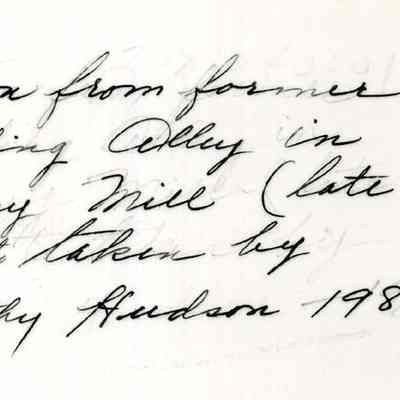 a from former
ing Alley in
y Mill (late
taken by
hy Hudson 198